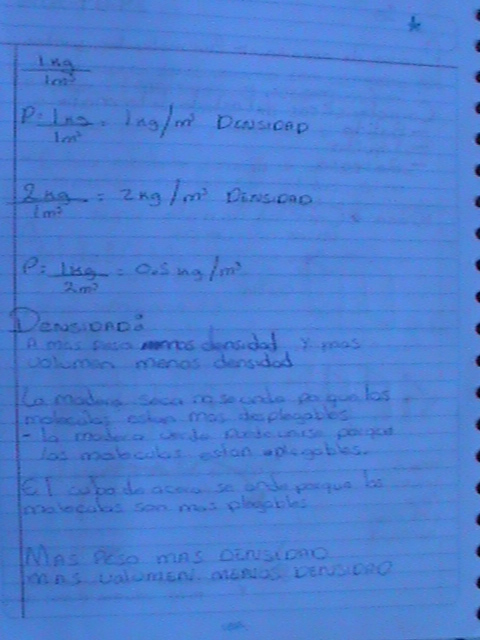 1kg
1m³
P = 1kg = 1kg/m³ DENSIDAD
1m³
2kg = 2kg/m³ DENSIDAD
1m³
P = 1kg = 0.5kg/m³
2m³
DENSIDAD:
A mas peso densidad y mas
volumen menos densidad
La madera seca no se unde por que las
moleculas estan mas desplegables
- la madera verde porque
las moleculas estan plegables.
El cubo de acero se unde porque las
moleculas son mas plegables
MAS PESO MAS DENSIDAD
MAS VOLUMEN MENOS DENSIDAD